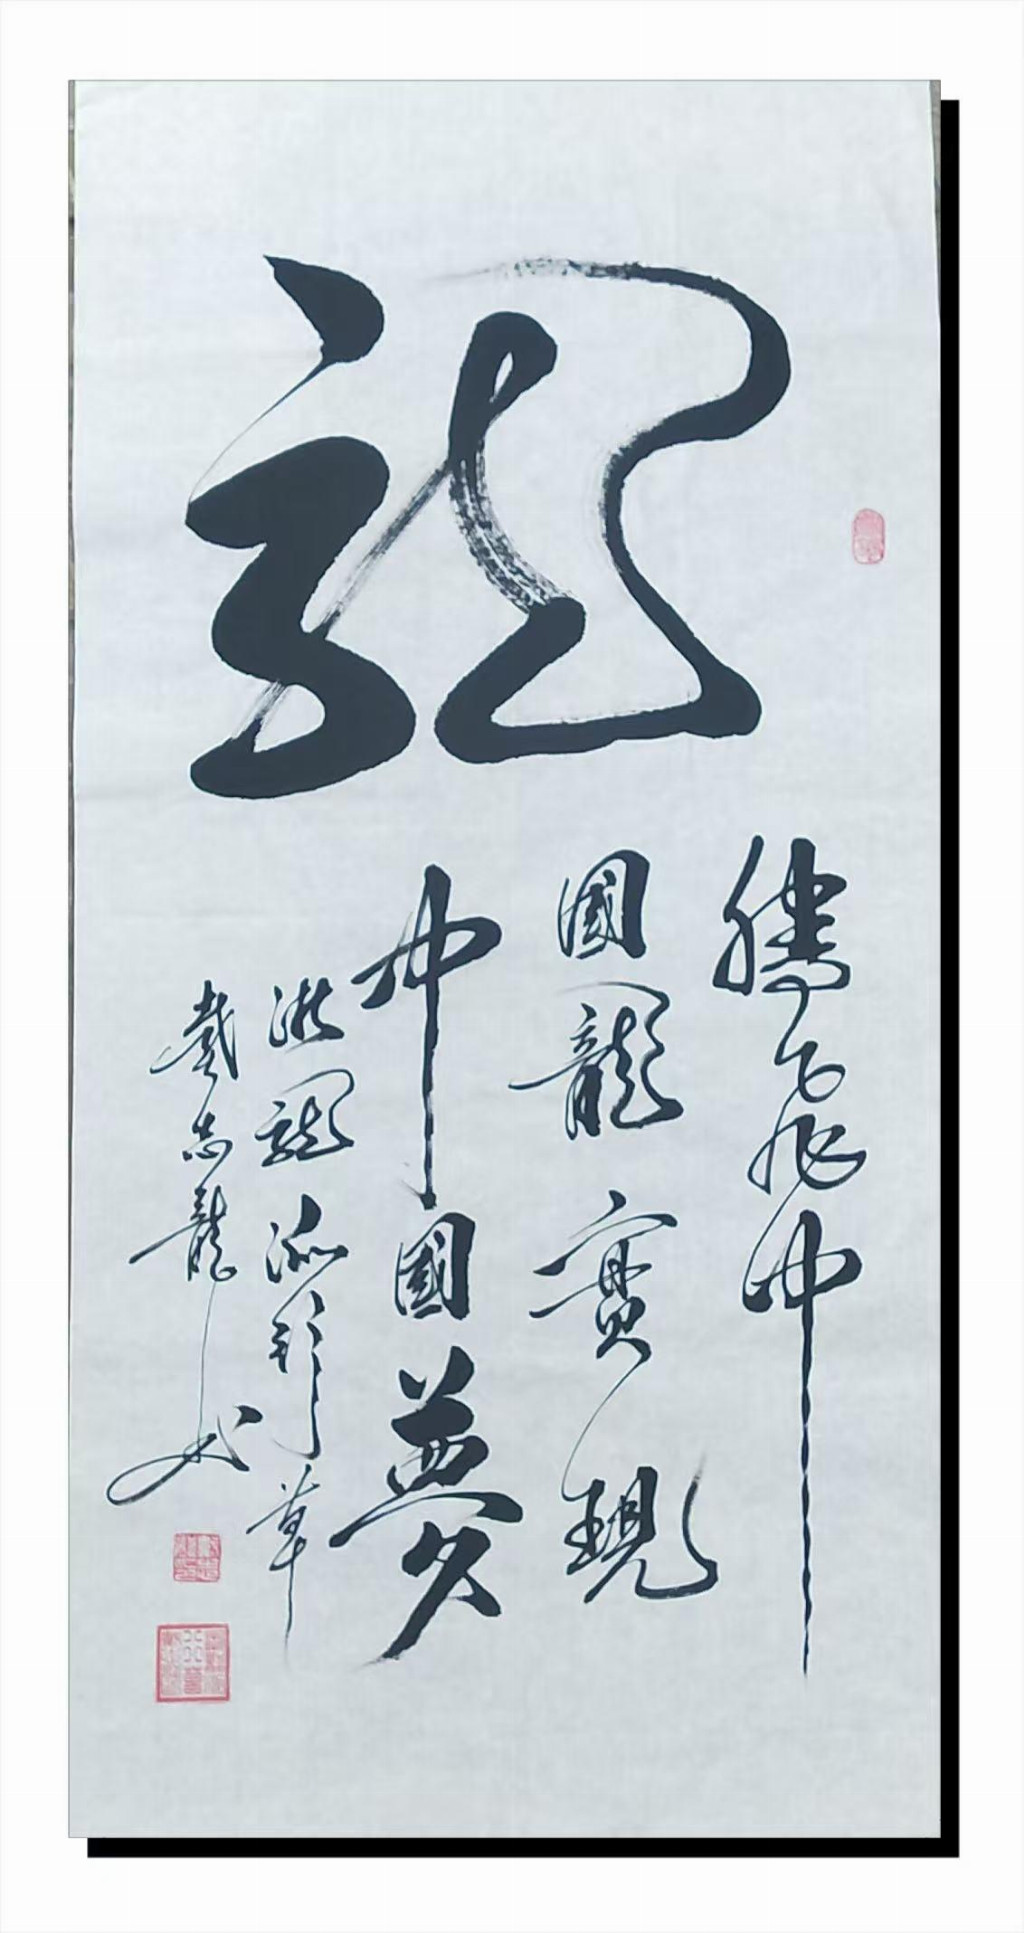 龍
騰飛中
國龍實現
中國夢
龍
草
戴志龍書